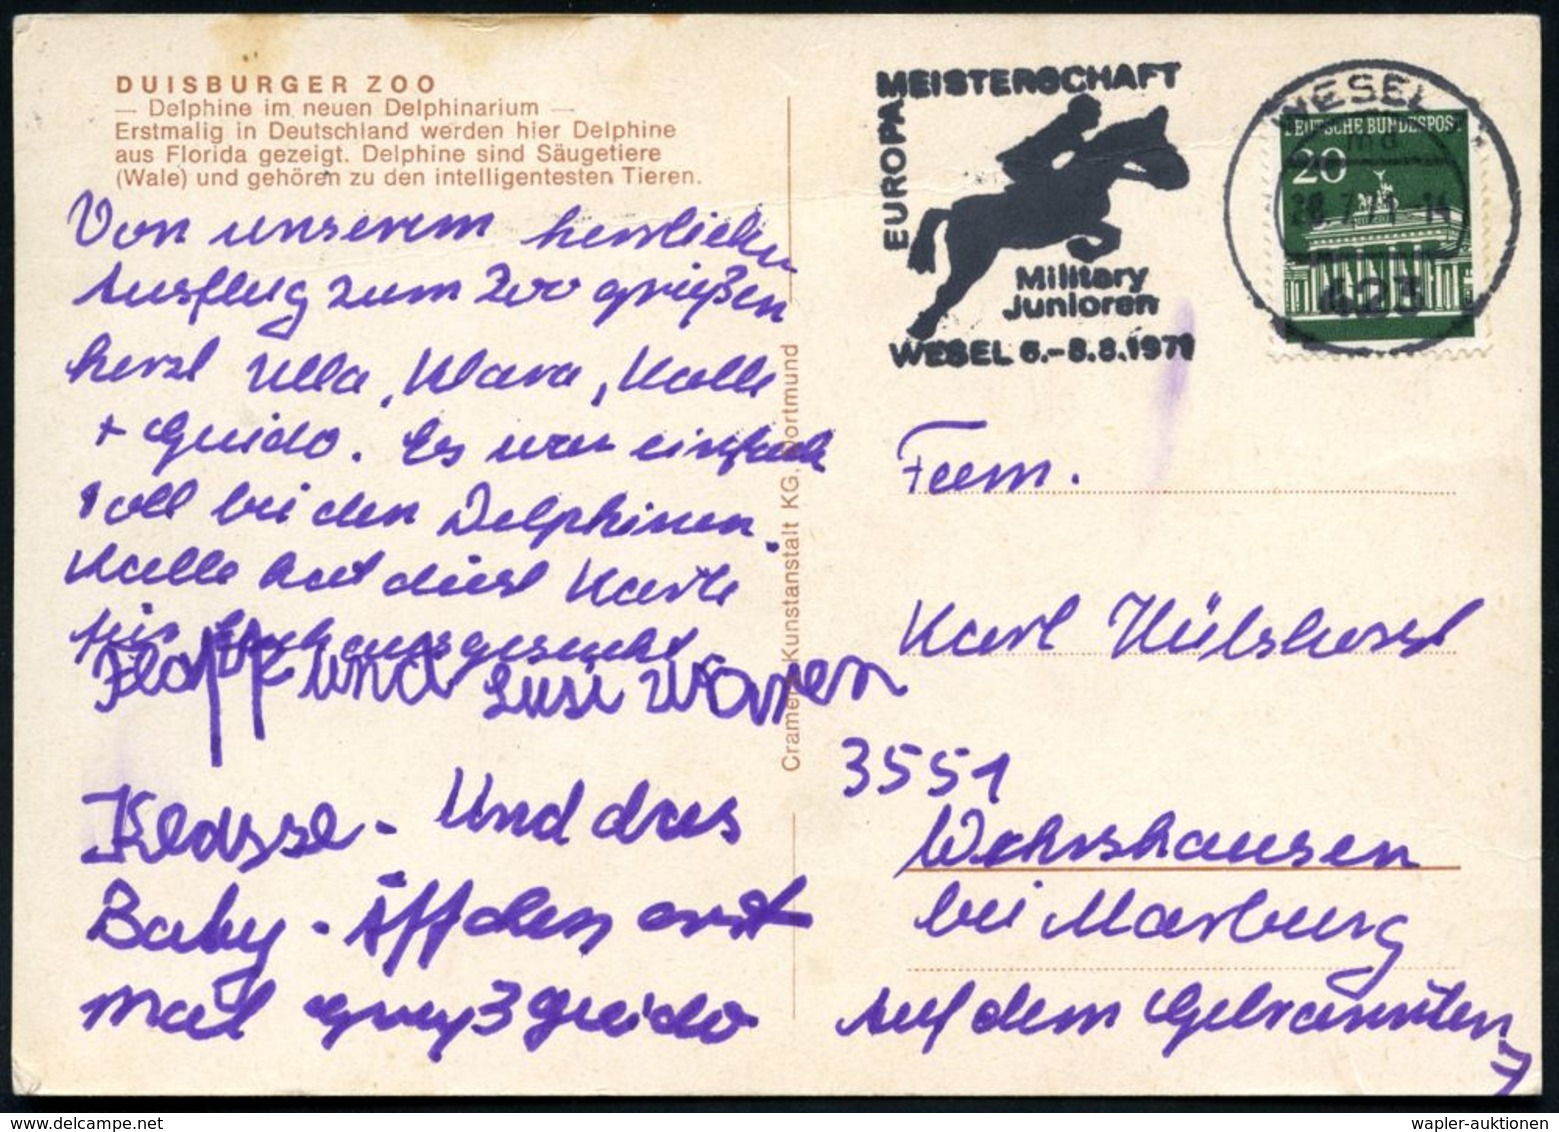 DUISBURGER ZOO
— Delphine im neuen Delphinarium —
Erstmalig in Deutschland werden hier Delphine
aus Florida gezeigt. Delphine sind Säugetiere
(Wale) und gehören zu den intelligentesten Tieren.
Von unserem herrlichen
Ausflug zum Zoo grüßen
herzl Ulla, Klara, Kalle
+ Guido. Es war einfach
toll bei den Delphinen.
Kalle hat diese Karte
für Euch ausgesucht
Flapp und Susi waren
Klasse - Und das
Baby - Äffchen erst
mal gruß Guido
Cramers Kunstanstalt KG, Dortmund
EUROPA MEISTERSCHAFT
Military
Junioren
WESEL 6.-8.8.1971
WESEL
DEUTSCHE BUNDESPOST
20
423
Fam.
Karl
3551
Wehrshausen
bei Marburg
Auf dem Gebrannten
7
wapler-auktionen